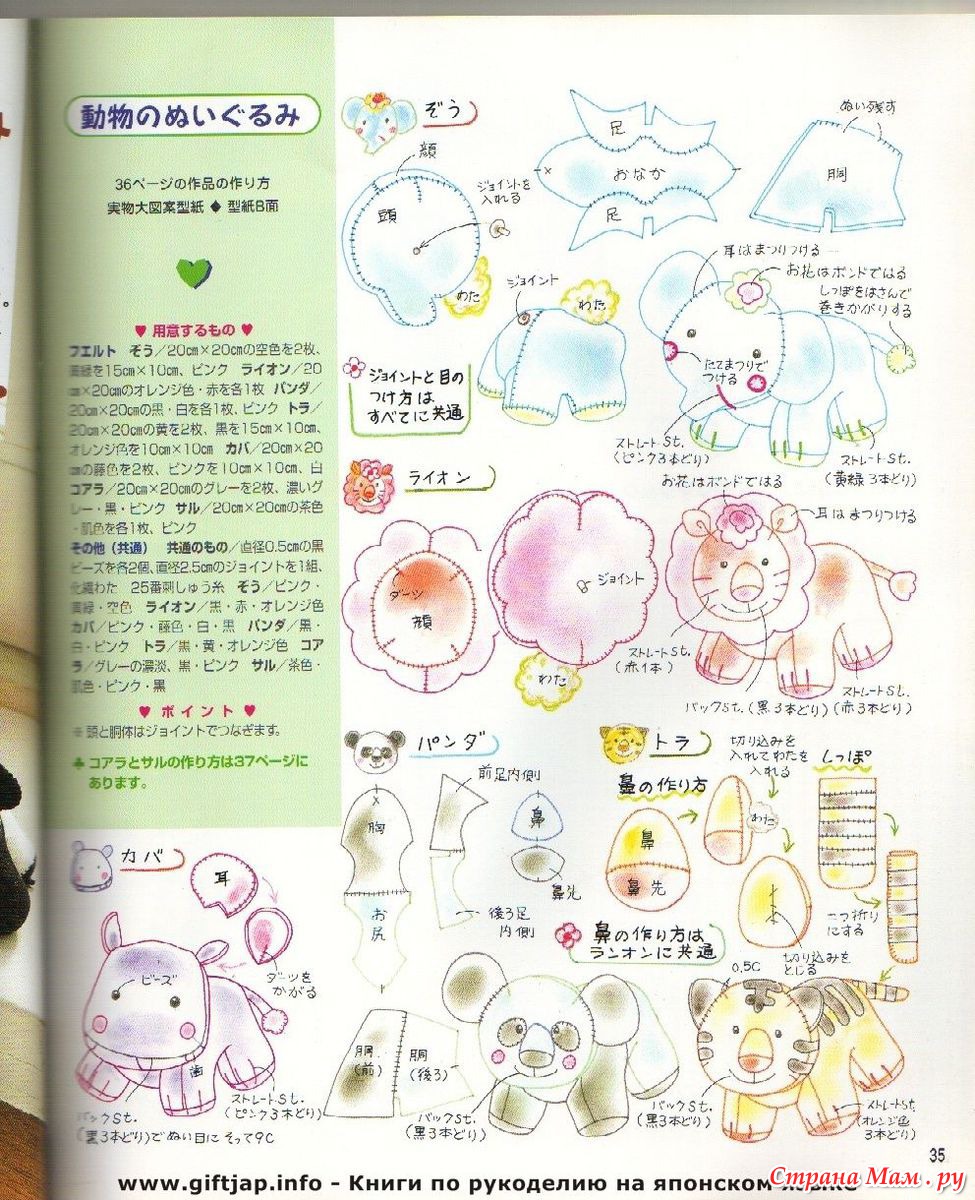 動物のぬいぐるみ
36ページの作品の作り方
実物大図案型紙 ◆ 型紙B面
♥ 用意するもの ♥
フエルト ぞう/20㎝×20㎝の空色を2枚、
黄緑を15㎝×10㎝、ピンク ライオン/20
㎝×20㎝のオレンジ色・赤を各1枚 パンダ/
20㎝×20㎝の黒・白を各1枚、ピンク トラ/
20㎝×20㎝の黄を2枚、黒を15㎝×10㎝、
オレンジ色を10㎝×10㎝ カバ/20㎝×20
㎝の藤色を2枚、ピンクを10㎝×10㎝、白
コアラ/20㎝×20㎝のグレーを2枚、濃いグ
レー・黒・ピンク サル/20㎝×20㎝の茶色
・肌色を各1枚、ピンク
その他(共通) 共通のもの/直径0.5㎝の黒
ビーズを各2個、直径2.5㎝のジョイントを1組、
化繊わた 25番刺しゅう糸 ぞう/ピンク・
黄緑・空色 ライオン/黒・赤・オレンジ色
カバ/ピンク・藤色・白・黒 パンダ/黒・
白・ピンク トラ/黒・黄・オレンジ色 コア
ラ/グレーの濃淡、黒・ピンク サル/茶色・
肌色・ピンク・黒
♥ ポイント ♥
※頭と胴体はジョイントでつなぎます。
♣コアラとサルの作り方は37ページに
あります。
ぞう
顔
頭
ジョイントを
入れる
わた
足
おなか
足
ぬい残す
胴
ジョイント
わた
ジョイントと目の
つけ方は
すべてに共通
耳はまつりつける
お花はボンドではる
しっぽをはさんで
巻きかがりする
たてまつりで
つける
ストレートSt.
(ピンク3本どり)
ストレートSt.
(黄緑3本どり)
ライオン
ダーツ
顔
ジョイント
わた
お花はボンドではる
耳はまつりつける
ストレートSt.
(赤1本)
バックSt.(黒3本どり)
ストレートSt.
(赤3本どり)
パンダ
胸
お
尻
前足内側
後ろ足
内側
鼻
鼻先
胴
(前)
胴
(後ろ)
バックSt.
(黒3本どり)
トラ
鼻の作り方
鼻
鼻先
切り込みを
入れてわたを
入れる
わた
切り込みを
とじる
しっぽ
二つ折り
にする
鼻の作り方は
ランオンに共通
0.5C
バックSt.
(黒3本どり)
ストレートSt.
(オレンジ色
3本どり)
カバ
耳
ダーツを
かがる
ビーズ
歯
バックSt.
(黒3本どり)でぬい目にそって9C
ストレートSt.
(ピンク3本どり)
35
www.giftjap.info - Книги по рукоделию на японском
Страна Мам.ру